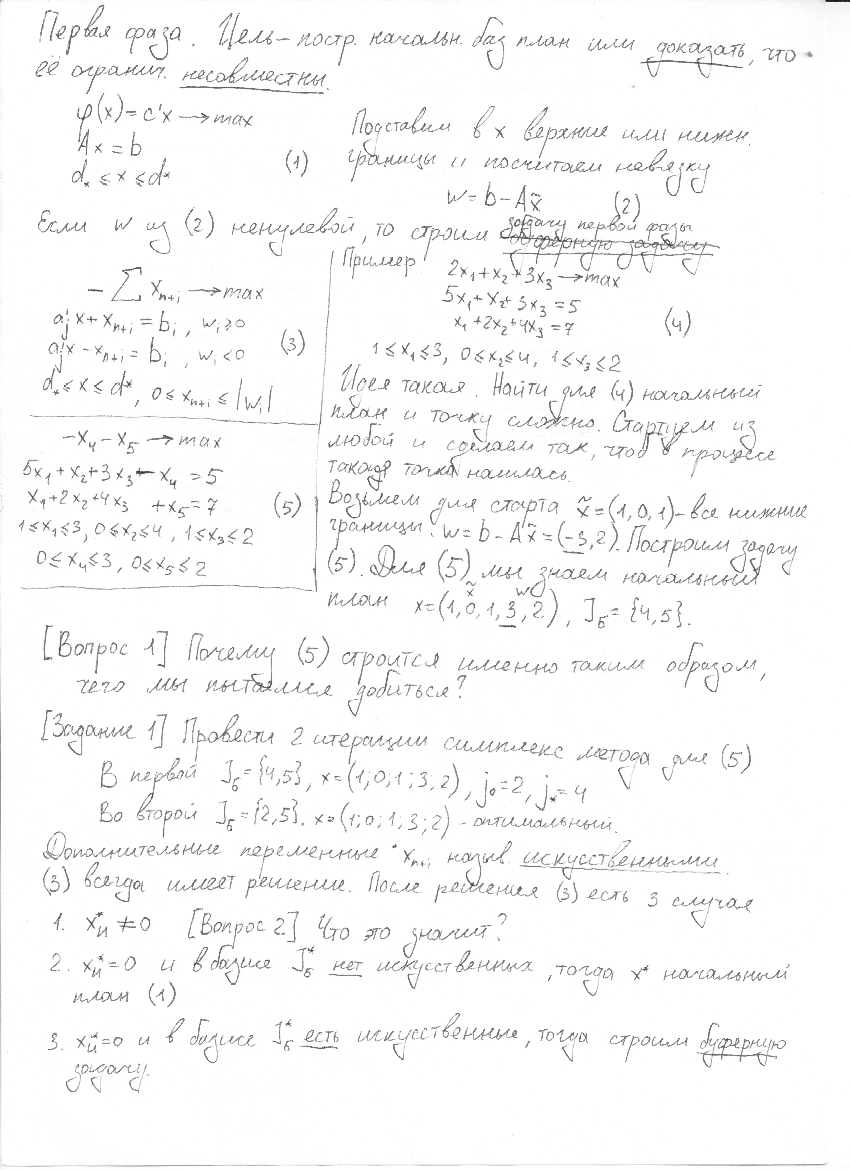 Первая фаза. Цель – постр. начальн. баз план или доказать, что
её огранич. несовместны.
φ(x) = c'x → max
Ax = b
d* ≤ x ≤ d*
(1)
Подставим в x верхние или нижн.
границы и посчитаем невязку
w = b - Ax̃ (2)
Если w из (2) ненулевой, то строим задачу первой фазы
буферную задачу
- ∑ xn+i → max
a'j x + xn+i = bi, wi ≥ 0
a'j x - xn+i = bi, wi < 0
d* ≤ x ≤ d*, 0 ≤ xn+i ≤ |wi|
(3)
-x4 - x5 → max
5x1 + x2 + 3x3 - x4 = 5
x1 + 2x2 + 4x3 + x5 = 7
1 ≤ x1 ≤ 3, 0 ≤ x2 ≤ 4, 1 ≤ x3 ≤ 2
0 ≤ x4 ≤ 3, 0 ≤ x5 ≤ 2
(5)
Пример 2x1 + x2 + 3x3 → max
5x1 + x2 + 3x3 = 5
x1 + 2x2 + 4x3 = 7
(4)
1 ≤ x1 ≤ 3, 0 ≤ x2 ≤ 4, 1 ≤ x3 ≤ 2
Идея такая. Найти для (4) начальный
план и точку сложно. Стартуем из
любой и сделаем так, чтоб в процессе
такая точка нашлась.
Возьмем для старта x̃ = (1, 0, 1) – все нижние
границы. w = b - Ax̃ = (-3, 2). Построим задачу
(5). Для (5) мы знаем начальный
план x = (1, 0, 1, 3, 2), Jб = {4, 5}.
x̃ w
[Вопрос 1] Почему (5) строится именно таким образом,
чего мы пытаемся добиться?
[Задание 1] Провести 2 итерации симплекс метода для (5)
В первой Jб = {4, 5}, x = (1; 0; 1; 3, 2), j0 = 2, j* = 4
Во второй Jб = {2, 5}. x = (1; 0; 1; 3; 2) – оптимальный.
Дополнительные переменные xn+i назыв. искусственными.
(3) всегда имеет решение. После решения (3) есть 3 случая
1. x*и ≠ 0 [Вопрос 2] Что это значит?
2. x*и = 0 и в базисе J*б нет искусственных, тогда x* начальный
план (1)
3. x*и = 0 и в базисе J*б есть искусственные, тогда строим буферную
задачу.